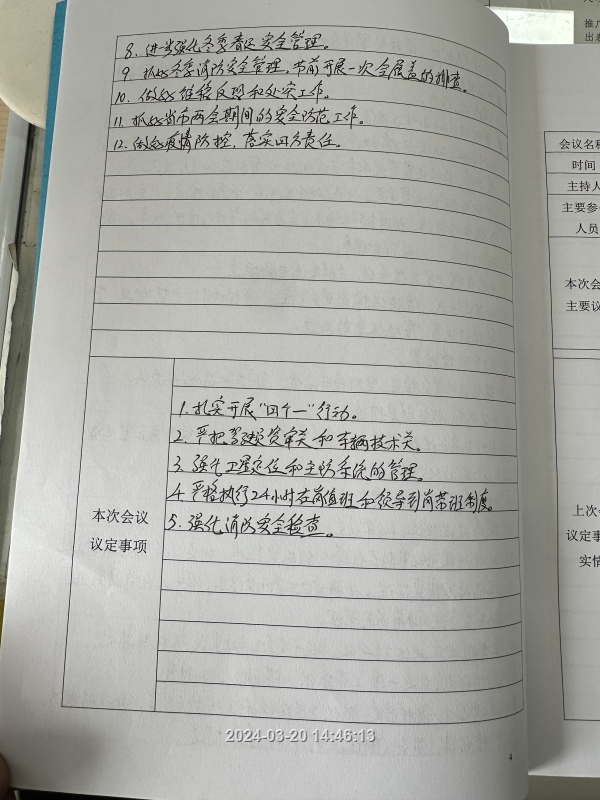 8. 进一步强化冬季春运安全管理。
9. 抓好冬季消防安全管理，节前开展一次全覆盖的排查。
10. 做好维稳反恐和处突工作。
11. 抓好省市两会期间的安全防范工作。
12. 做好疫情防控，落实四方责任。
1. 扎实开展“四个一”行动。
2. 严把驾驶员资审关和车辆技术关。
3. 强化卫星定位和主防系统的管理。
4. 严格执行24小时在岗值班和领导到岗带班制度。
本次会议
议定事项
5. 强化消防安全检查。
推广
会议名称
时间
主持人
主要参
人员
本次会
主要议
上次会
议定事
实情
2024-03-20 14:46:13
4